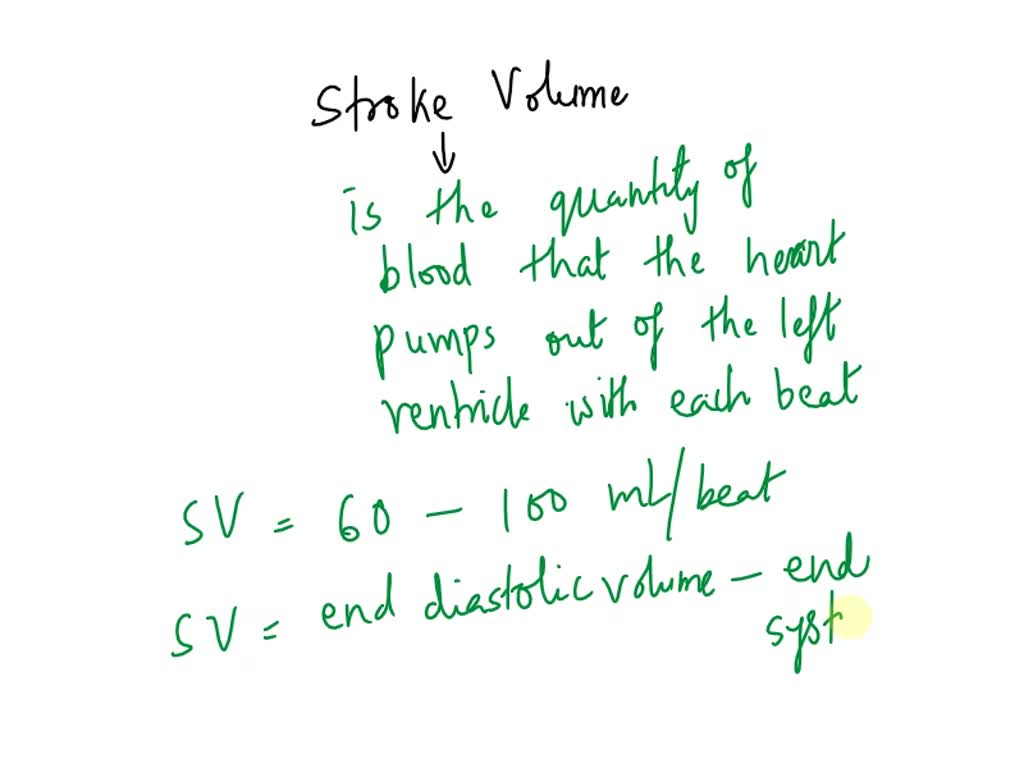 Stroke Volume
↓
is the quantity of
blood that the heart
pumps out of the left
ventricle with each beat
SV = 60 - 100 ml/beat
SV = end diastolic volume - end
syst